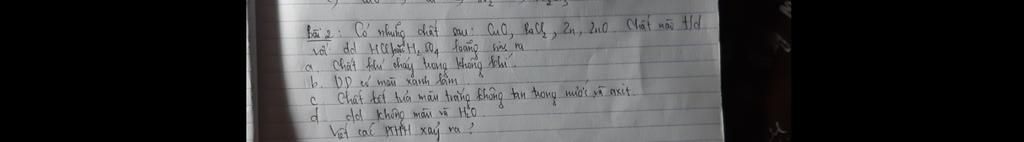 Bài 2: Có những chất sau: CuO, BaCl2, Zn, ZnO. Chất nào t/d
với dd HCl, H2SO4 loãng sinh ra
a. Chất khí cháy trong không khí.
b. DD có màu xanh lam.
c. Chất kết tủa màu trắng không tan trong nước và axit.
d. dd không màu và H2O.
Viết các PTHH xảy ra?